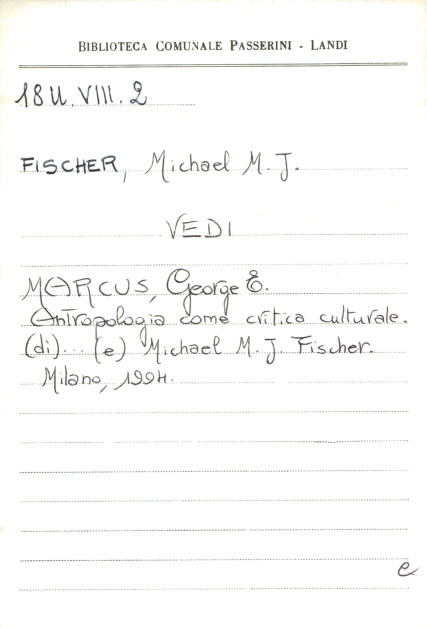 BIBLIOTECA COMUNALE PASSERINI - LANDI
18U.VIII.2
FISCHER, Michael M. J.
VEDI
MARCUS, George E.
Antropologia come critica culturale.
(di)... (e) Michael M. J. Fischer.
Milano, 1994.
e